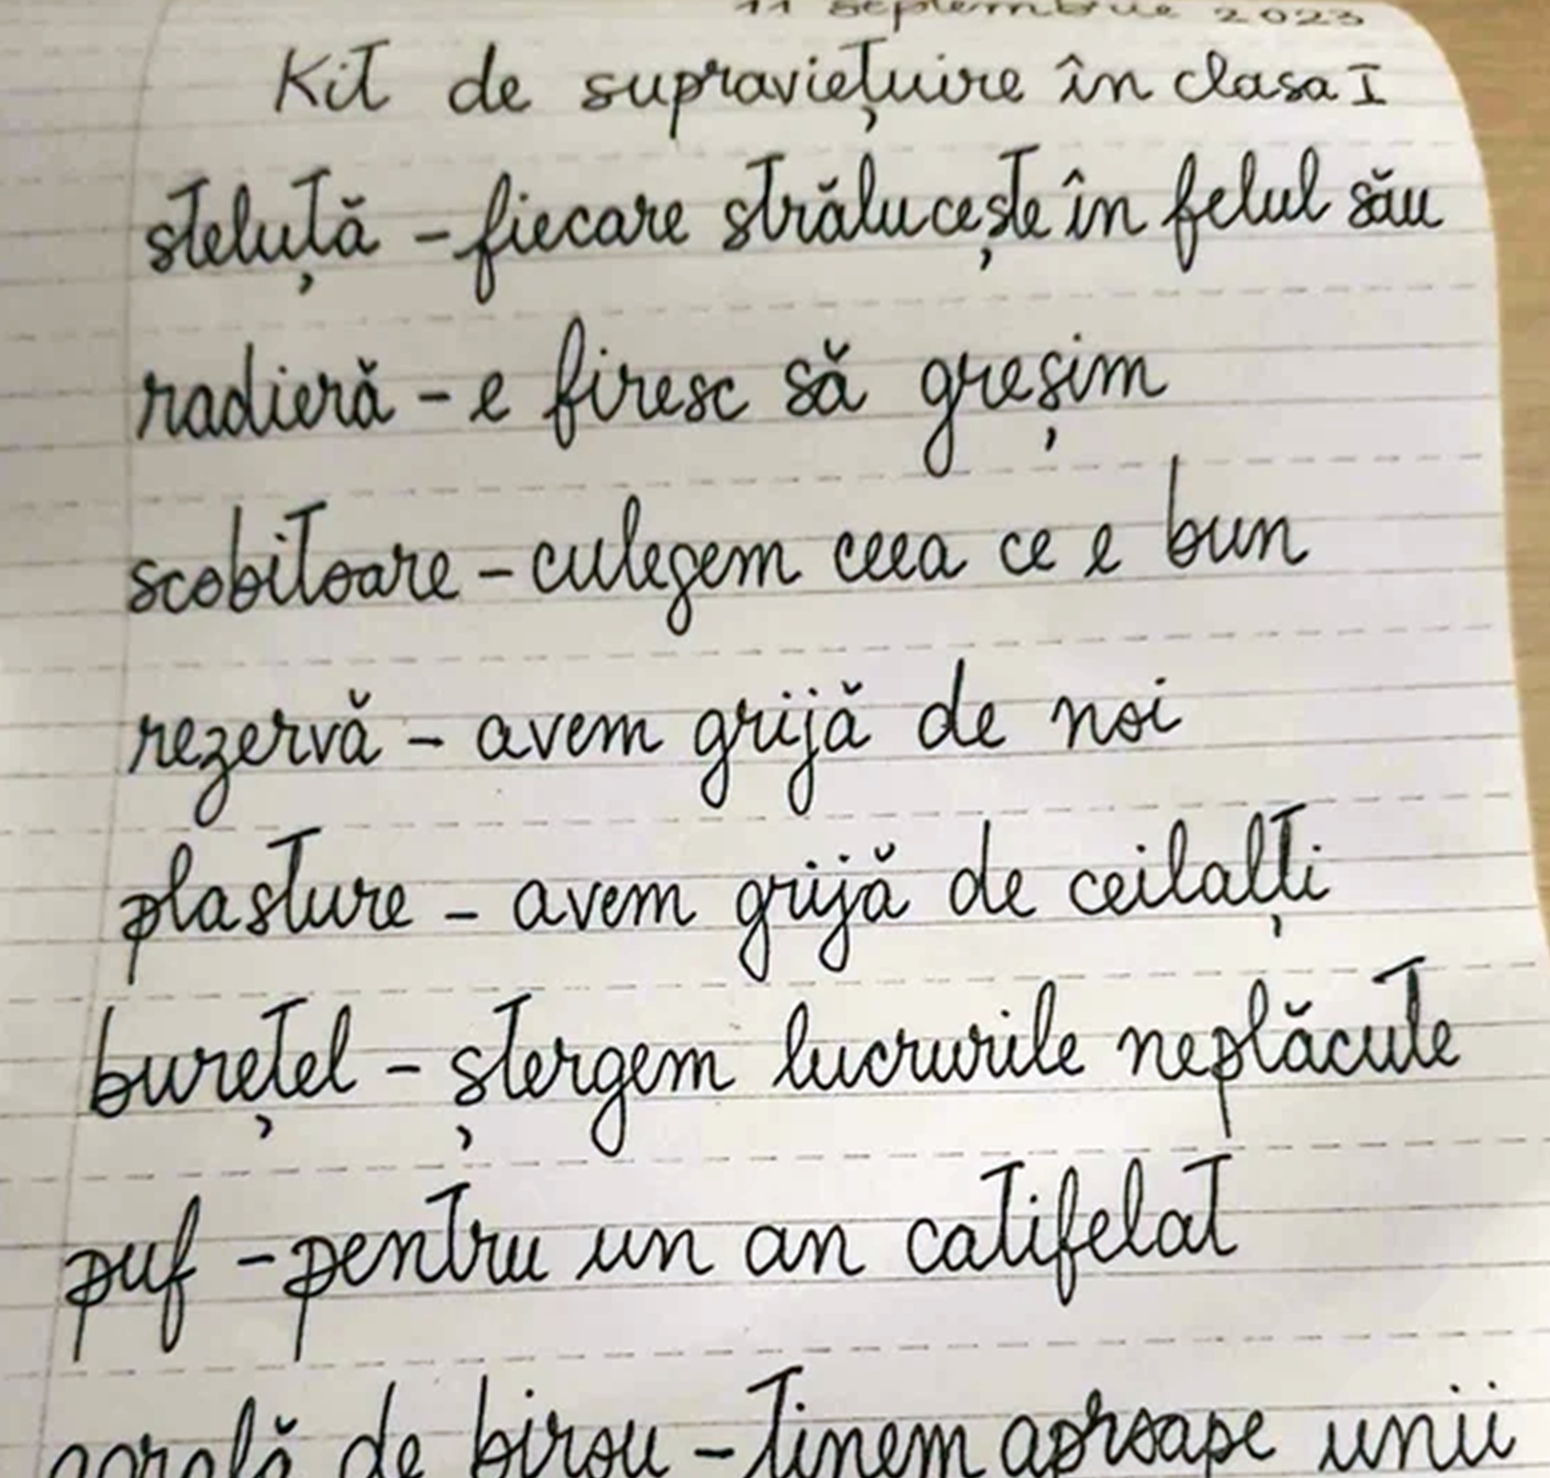 11 septembrie 2023
Kit de supraviețuire în clasa I
steluță - fiecare strălucește în felul său
radieră - e firesc să greșim
scobitoare - culegem ceea ce e bun
rezervă - avem grijă de noi
plasture - avem grijă de ceilalți
burețel - ștergem lucrurile neplăcute
puf - pentru un an catifelat
agrafă de birou - ținem aproape unii